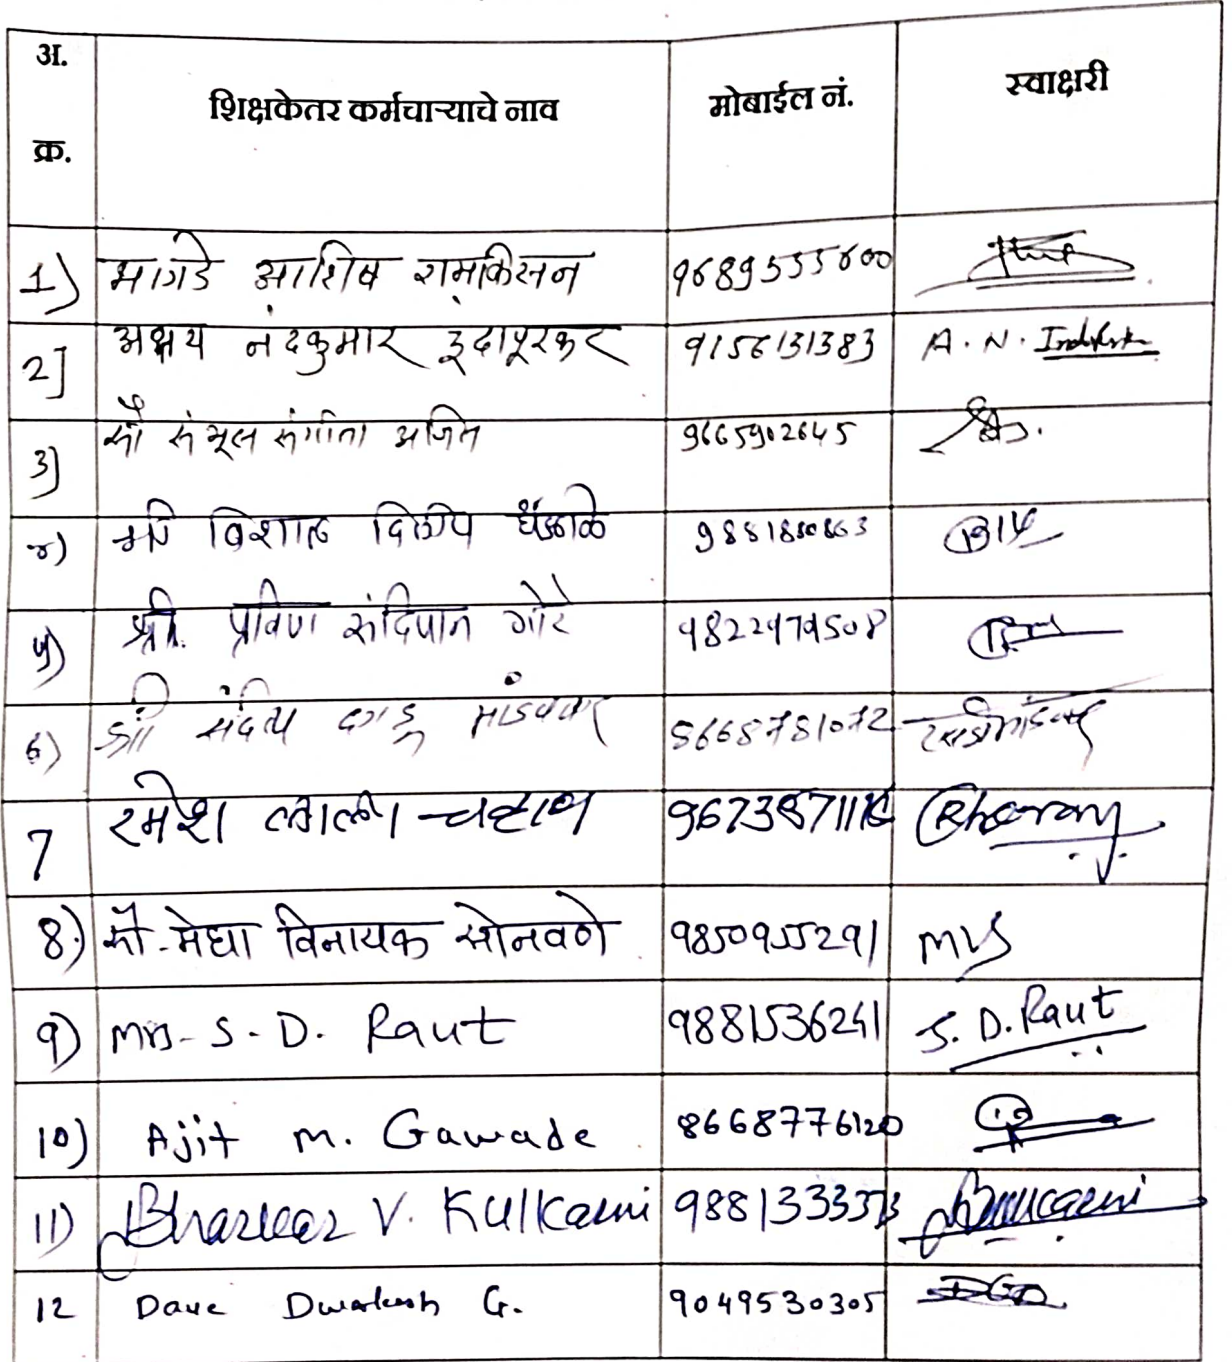 अ. क्र. शिक्षकेतर कर्मचाऱ्याचे नाव मोबाईल नं. स्वाक्षरी
1) मागडे आशिष रामकिसन 9689555600
2] अक्षय नंदकुमार इंदापूरकर 9156131383 A. N.
3] सौ संगीता अजित 9665902645
४) श्री विशाल दिलीप 9881850863
५) श्री. प्रविण संदिपान गोरे
6) श्री संदिप दगडू 8668781072
7 रमेश लाला चव्हाण
8) सौ. मेघा विनायक सोनवणे 9850955291 MVS
9) Mrs- S. D. Raut 9881536241 S. D. Raut
10) Ajit M. Gawade 8668776120
11) V. Kulkarni
12 Dave Dwarkesh G. 9049530305